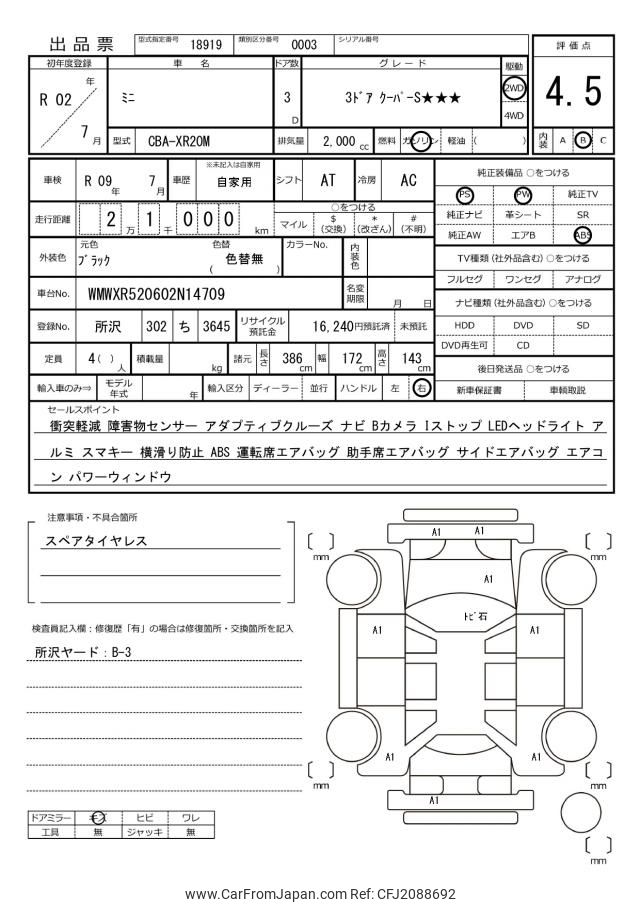 出品票 型式指定番号 18919 類別区分番号 0003 シリアル番号
評価点
4.5
内装 A B C
初年度登録 車名 ドア数 グレード 駆動
R 02 年 7 月
ミニ
3 D
3ドア クーパーS★★★
2WD
4WD
型式 CBA-XR20M 排気量 2,000 cc 燃料 ガソリン 軽油 ( )
車検 R 09 年 7 月 車歴 ※未記入は自家用 自家用 シフト AT 冷房 AC
走行距離 2 万 1 千 0 0 0 km
○をつける
マイル $(交換) *(改ざん) #(不明)
外装色 元色 ブラック 色替 ( 色替無 ) カラーNo. 内装色
車台No. WMWXR520602N14709 名変期限 月 日
登録No. 所沢 302 ち 3645 リサイクル預託金 16,240円預託済 未預託
定員 4( ) 人 積載量 kg 諸元 長さ 386 cm 幅 172 cm 高さ 143 cm
輸入車のみ⇒ モデル年式 年 輸入区分 ディーラー 並行 ハンドル 左 右
純正装備品 ○をつける
PS PW 純正TV
純正ナビ 革シート SR
純正AW エアB ABS
TV種類(社外品含む) ○をつける
フルセグ ワンセグ アナログ
ナビ種類(社外品含む) ○をつける
HDD DVD SD
DVD再生可 CD
後日発送品 ○をつける
新車保証書 車輌取説
セールスポイント
衝突軽減 障害物センサー アダプティブクルーズ ナビ Bカメラ Iストップ LEDヘッドライト ア
ルミ スマキー 横滑り防止 ABS 運転席エアバッグ 助手席エアバッグ サイドエアバッグ エアコ
ン パワーウィンドウ
注意事項・不具合箇所
スペアタイヤレス
検査員記入欄：修復歴「有」の場合は修復箇所・交換箇所を記入
所沢ヤード：B-3
ドアミラー キズ ヒビ ワレ
工具 無 ジャッキ 無
A1 A1
mm mm
A1
トビ石
A1 A1
A1 A1
mm mm
A1
mm
www.CarFromJapan.com Ref: CFJ2088692